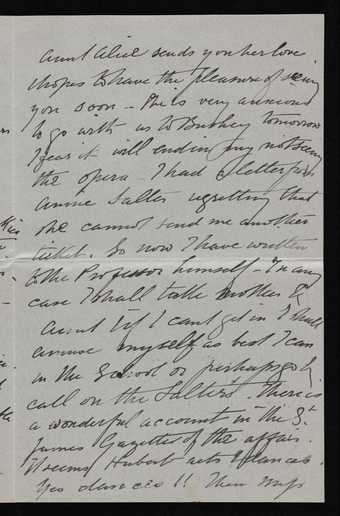 Aunt Alice sends you her love
& hopes to have the pleasure of seeing
you soon - She is very anxious
to go with us to Bushey tomorrow
I fear it will end in my not seeing
the opera - I had a letter from
Annie Salter regretting that
she cannot send me another
ticket. So now I have written
to the Professor himself - In any
case I shall take mother &
Aunt & if I cant get in I shall
amuse myself as best I can
in the School or perhaps go &
call on the Salters. There is
a wonderful account in the St
James Gazette of the affair.
It seems Hubert acts & dances.
Yes dances!! Then Miss